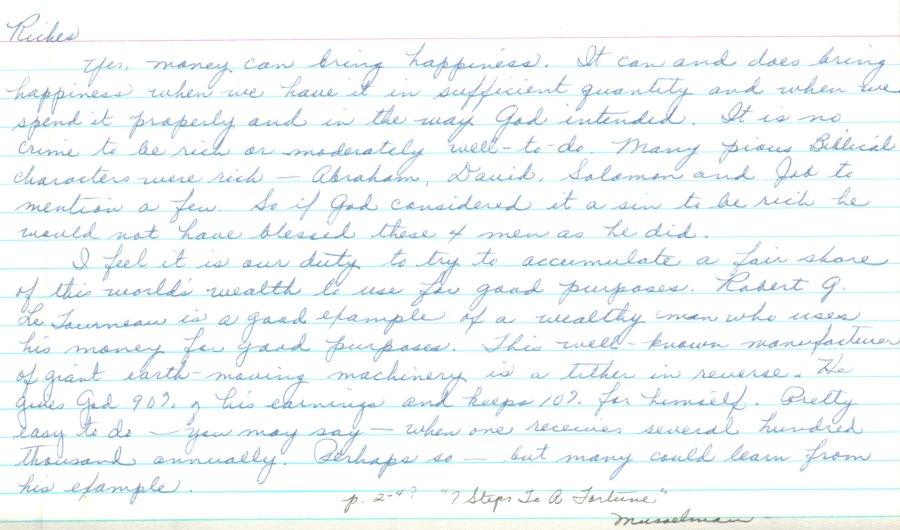 Riches
Yes, money can bring happiness. It can and does bring
happiness when we have it in sufficient quantity and when we
spend it properly and in the way God intended. It is no
crime to be rich or moderately well-to-do. Many pious Biblical
characters were rich — Abraham, David, Solomon and Job to
mention a few. So if God considered it a sin to be rich he
would not have blessed these 4 men as he did.
I feel it is our duty to try to accumulate a fair share
of this world's wealth to use for good purposes. Robert G.
Le Tourneau is a good example of a wealthy man who uses
his money for good purposes. This well-known manufacturer
of giant earth-moving machinery is a tither in reverse. He
gives God 90% of his earnings and keeps 10% for himself. Pretty
easy to do — you may say — when one receives several hundred
thousand annually. Perhaps so — but many could learn from
his example.
p. 2-4? "7 Steps To A Fortune"
Musselman